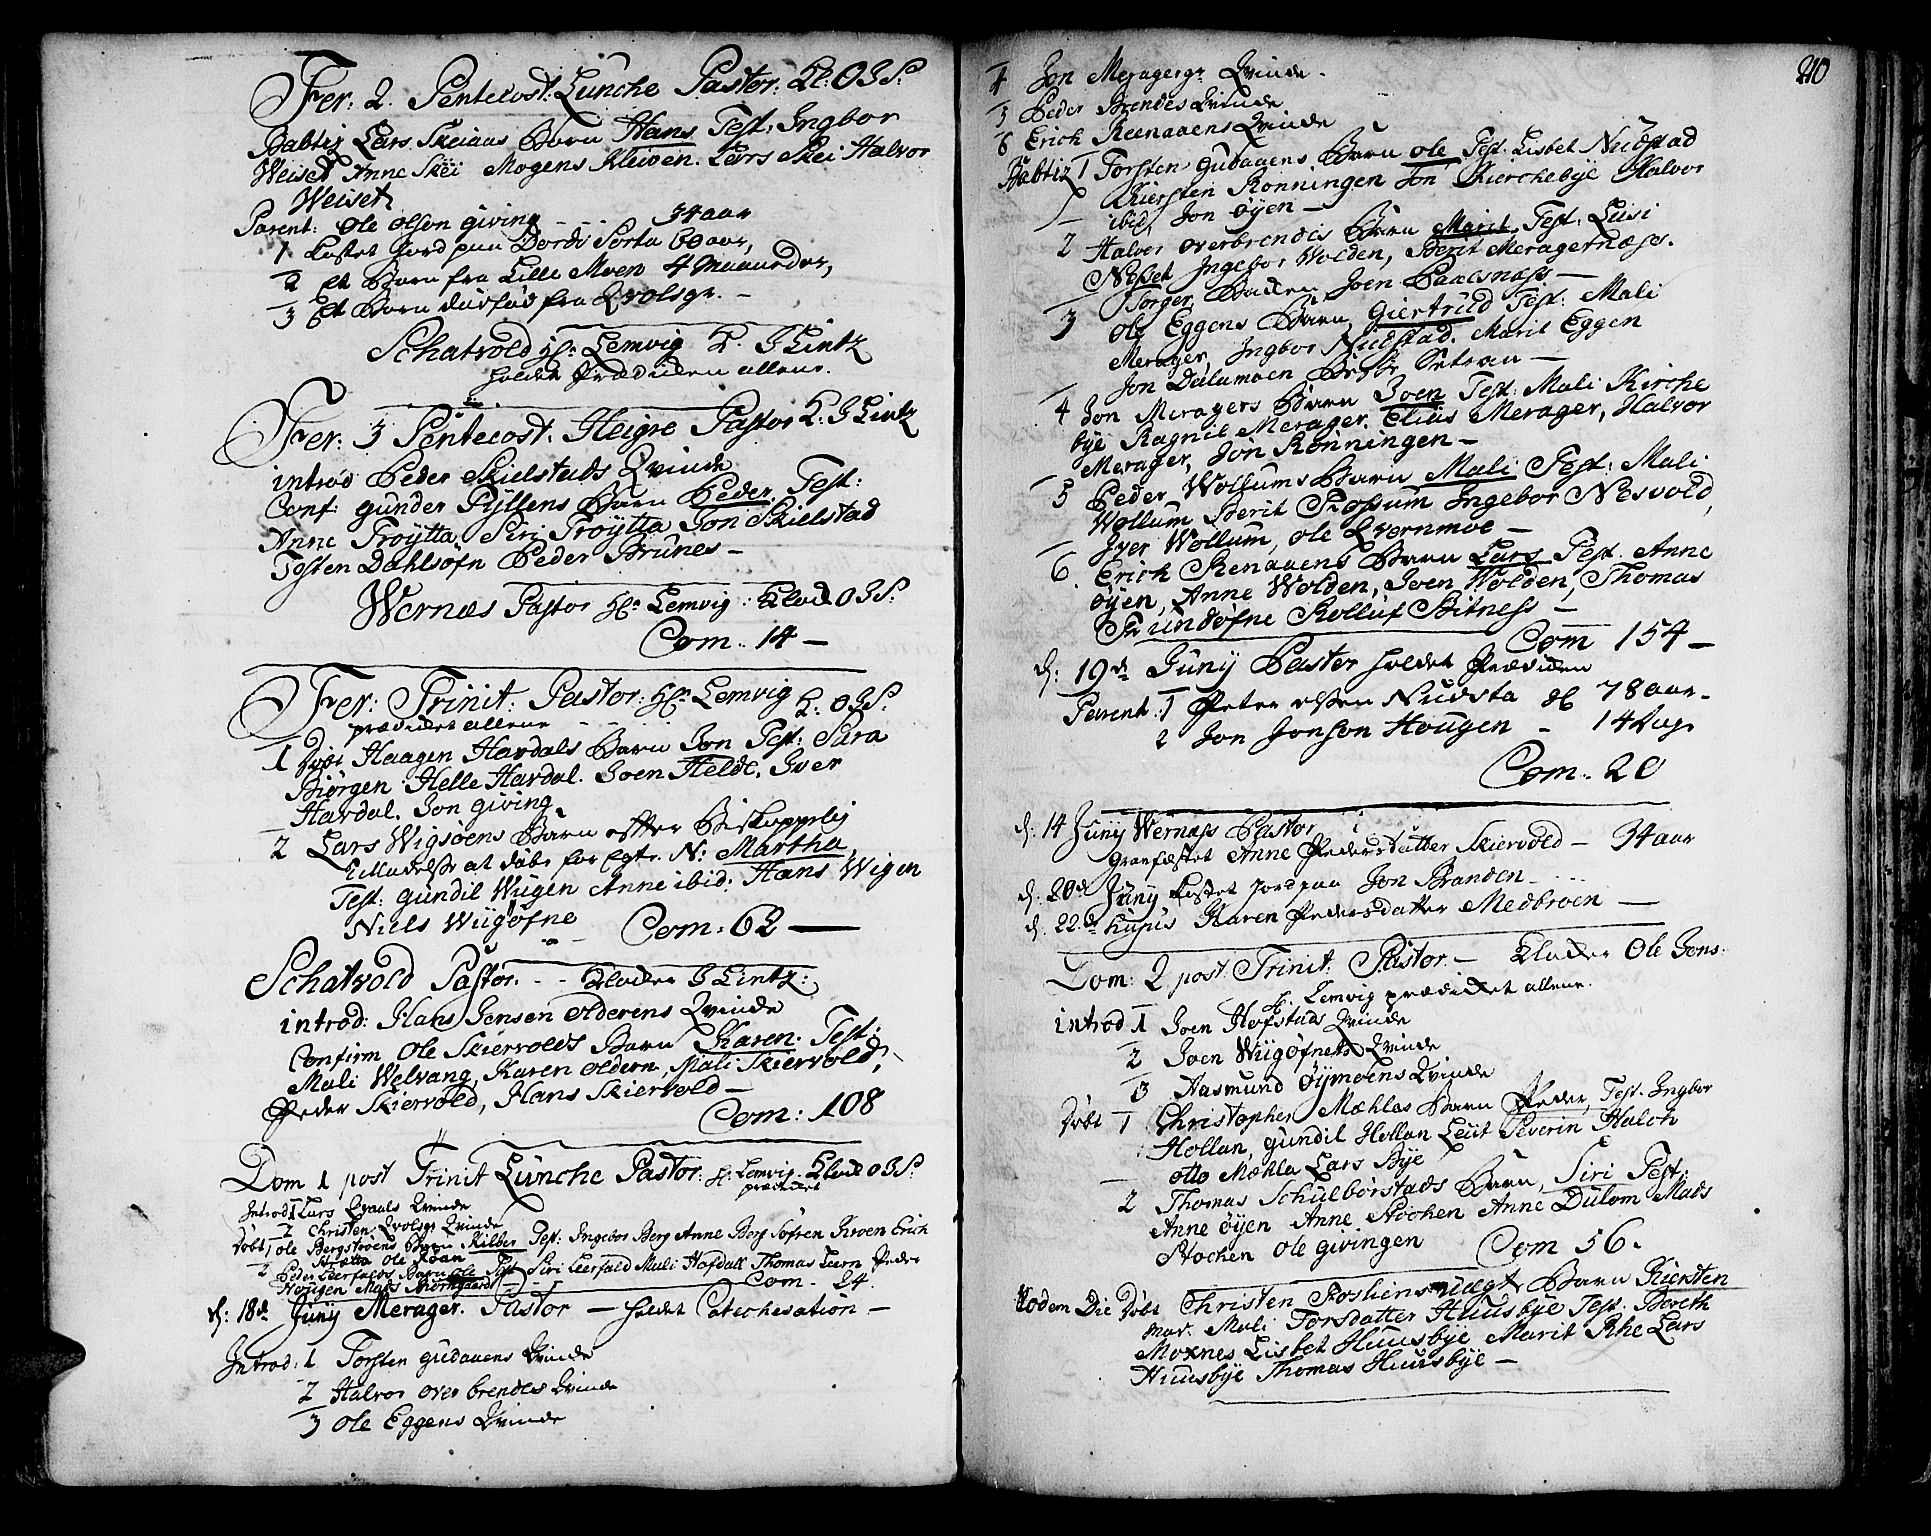 Fer: 2. Pentecost. Lunche Pastor. Kl: O J S:
Babtiz Lars Skeiaas Barn Hans Test: Ingbor
Weiset Anne Skei Mogens Kleiven. Lars Skei Halvor
Weiset
Parent: Ole Olson Giving - - - 34 aar
1 Kastet Jord paa Dordi Sorta 60 aar,
2 Et Barn fra Lille Moen 4 Maaneder,
3 Et Barn dødfød fra Qvolsgr. -
Schatvold Hr. Lemvig K. J Lintz
holdt Prædiken allene.
Fer: 3 Pentecost. Heigre Pastor K: J Lintz
introd Peder Skielstads Qvinde
Conf: Gunder Pyllens Barn Peder. Test:
Anne Frøytta Siri Frøytta Jon Skielstad
Tosten Dahlsøfn Peder Brunes -
Wernæs Pastor Hr. Lemvig: Klock O J S:
Com. 14 -
Fer: Trinit: Pastor: Hr. Lemvig K: O J S:
prædiket allene
1 Døbt Haagen Hardals Barn Jon Test: Sara
Biørgen Helle Hardal. Joen Helde. Iver
Hardal. Jon Giving
2 Lars Wigsøens Barn efter Biskoppelig
Tilladelse at døbe for Egte. N: Martha
Test: Gundil Wiigen Anne ibid. Hans Wigen
Niels Wiigøfne Com: 62 —
Schatvold Pastor. - - Klocker J Lintz:
introd: Hans Jensen Olderens Qvinde
Confirm Ole Skiervolds Barn Karen. Test:
Mali Welvang, Karen Oldern, Mali Skiervold,
Peder Skiervold, Hans Skiervold -
Com: 108
Dom 1 post Trinit Lünche Pastor: Hr. Lemvig. Klock O J S:
prædiket
Introd: 1 Lars Qvaals Qvinde
2 Christen Qvolsgr Qvinde
Døbt 1 Ole Bergstrøens Barn Kilber Test: Ingebor Berg Anne Berg Søfren Kroen Erich
Ole Roan
2 Peder Leerfalds Barn Ole Test Siri Leerfald Mali Hofdall Thomas Leern Peder
Hougen Mads Com. 24.
d: 18de Juny Merager. Pastor - holdt Catechesation -
Introd: 1 Torsten Gudaaens Qvinde
2 Halvor Over Brendes Qvinde
3 Ole Eggens Qvinde
210
4 Jon Meragergr Qvinde.
5 Peder Brendes Qvinde
6 Erich Reenaaens Qvinde
Babtiz 1 Torsten Gudaaens Barn Ole Test. Lisbet Nudstad
Kiersten Rønningen Jon Kirchebye Halvor
ibid, Jon Øyen -
2 Halvor Overbrendes Barn Marit Test: Luisi
Nesset Ingebor Wolden, Berit Meragernæss.
Torger Joen Paalsnæss -
3 Ole Eggens Barn, Giertrud Test: Mali
Merager, Ingbor Nudstad. Marit Eggen
Jon Dalamoen Setran -
4 Jon Meragers Barn Joen Test: Mali Kirche
bye Ragnil Merager. Elias Merager, Halvor
Merager, Jon Rønningen -
5 Peder Wollums Barn Mali Test: Mali
Wollum Berit Rossum Ingebor Nesvold,
Iver Wollum, Ole Qvernmoe -
6. Erich Renaaens Barn Lars Test. Anne
Øyen, Anne Wolden, Joen Wolden, Thomas
Rolluf Bitness -
Com 154 -
d: 19de Juny Pastor holdt Prædiken
Parent. 1 Peter Olsen Nudsta 78 aar -
2 Jon Jonson Hougen - 14 Dage
Com. 20
d: 14 Juny Wernæss Pastor
Grafæstet Anne Pedersdatter Skiervold - 34 aar
d: 20de Juny Kastet Jord paa Jon Branden - - -
d: 22de hujus Karen Pedersdatter Medbroen —
Dom: 2 post Trinit: Pastor. - Klocker Ole Jons:
Hr. Lemvig prædiket allene.
introd 1 Joen Hofstads Qvinde
2 Joen Wiigøfnets Qvinde
3 Aasmund Øymoens Qvinde
Døbt 1 Christopher Mæhlas Barn Peder, Test. Ingbor
Hollan, Gundil Hollan Leut Severin Halch
Otto Mæhla Lars Bye
2 Thomas Schulbørstads Barn, Siri Test:
Anne Øyen Anne Stochen Anne Dulom Mads
Stochen Ole Givingen Com 56.
Eodem Die Døbt Christen uægt Barn Kiersten
Mod. Mali Torsdatter Huusbye Test. Bereth
Moxnes Lisbet Huusbye Marit Rhe Lars
Huusbye Thomas Huusbye -